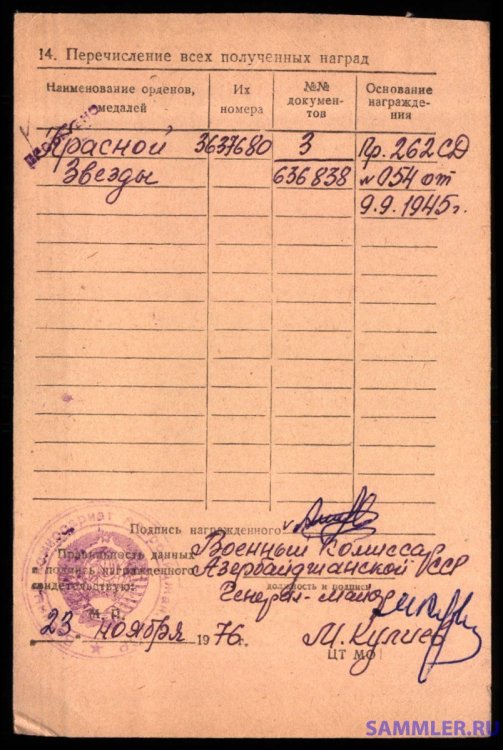 14. Перечисление всех полученных наград
Наименование орденов, медалей
Их номера
№№ документов
Основание награждения
Красной 3637680 3 Пр. 262 СД
Звезды 636838 №054 от
9.9.1945г.
Подпись награжденного
Правильность данных
и подпись награжденного
свидетельствую:
Военный Комиссар
Азербайджанской ССР
должность и подпись
Генерал-майор
М. П.
23 ноября 1976 г.
М. Кулиев
ЦТ МО
SAMMLER.RU